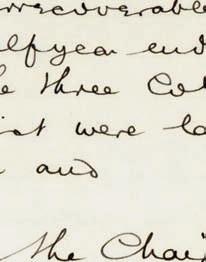 irrecoverable
halfyear end
three Col
ist were la
and
the Chai